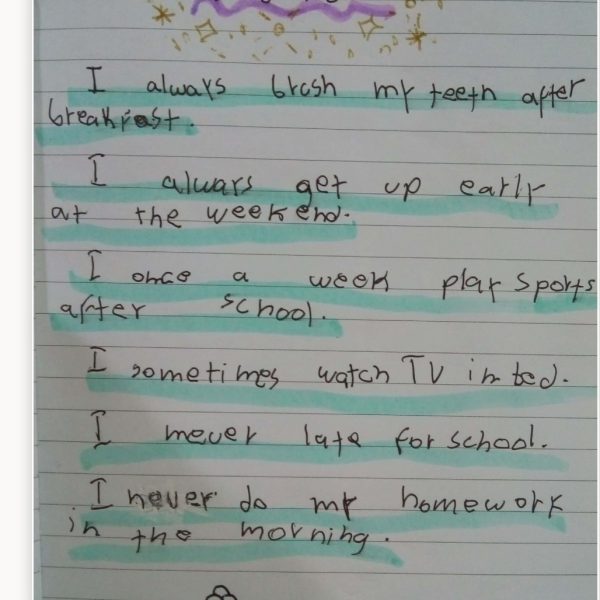 I always brush my teeth after
breakfast.
I always get up early
at the weekend.
I once a week play sports
after school.
I sometimes watch TV in bed.
I never late for school.
I never do my homework
in the morning.